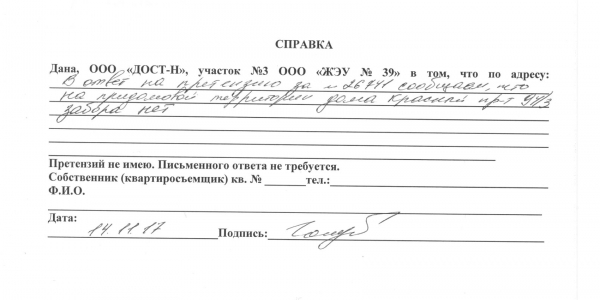 СПРАВКА
Дана, ООО «ДОСТ-Н», участок №3 ООО «ЖЭУ № 39» в том, что по адресу:
В ответ на претензию за № 26741 сообщаем, что
на придомовой территории дома Красный пр-т
забора нет
Претензий не имею. Письменного ответа не требуется.
Собственник (квартиросъемщик) кв. № тел.:
Ф.И.О.
Дата:
14.11.17 Подпись: